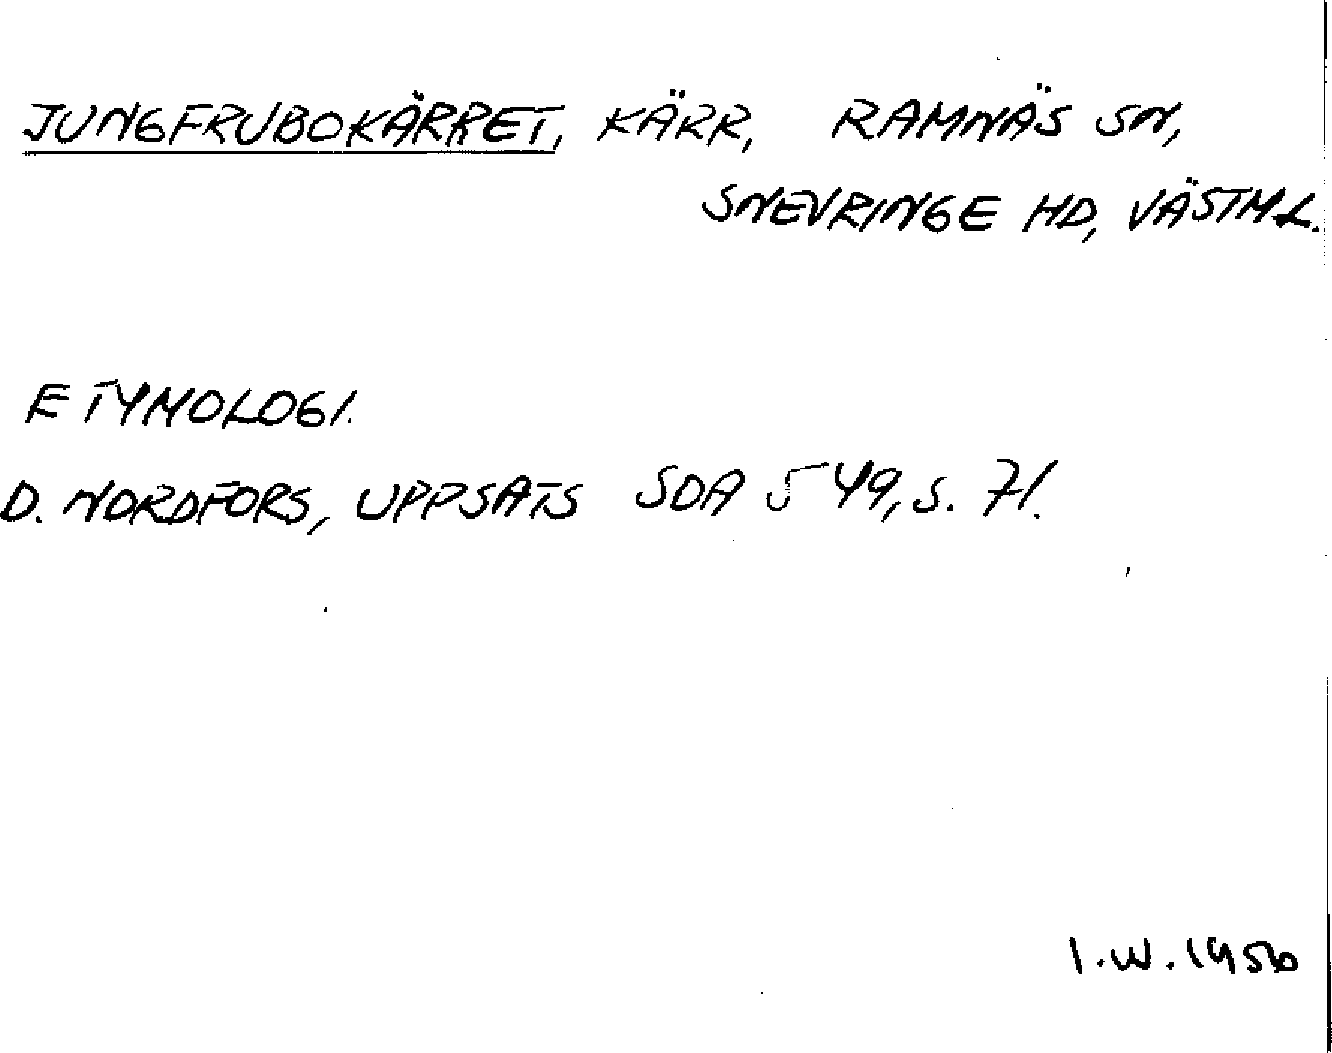 JUNGFRUBOKÄRRET, KÄRR, RAMNÄS SN,
SNEVRINGE HD, VÄSTML.
ETYMOLOGI.
D. NORDFORS, UPPSATS SOA 549, S. 71.
I.W. 1956